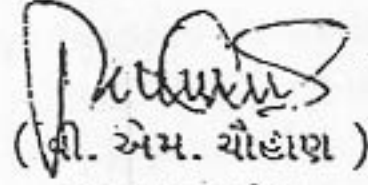 (વી. એમ. ચૌહાણ )